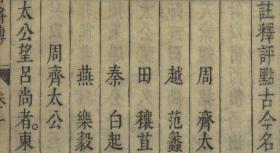 註釋評點古今名
周 齊太
越 范蠡
田穰苴
秦 白起
燕 樂毅
周齊太公
太公望呂尚者東